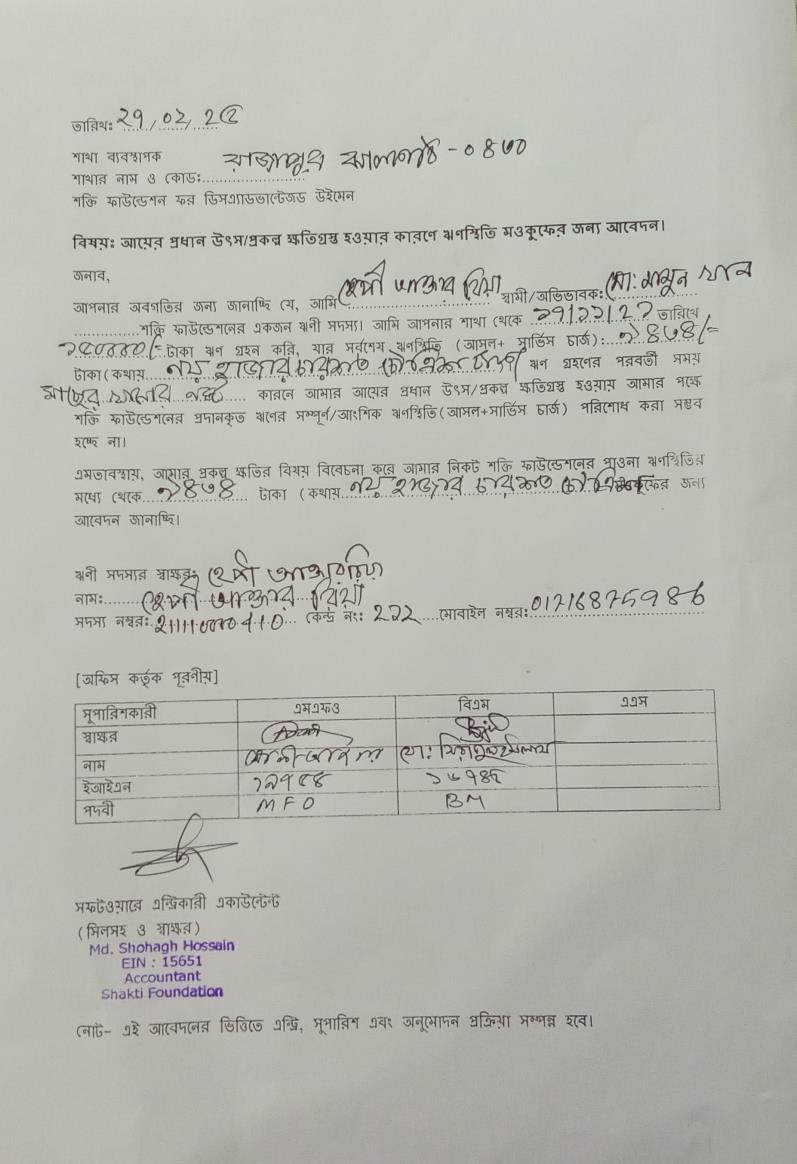 তারিখ: 29/02/2৫
শাখা ব্যবস্থাপক
শাখার নাম ও কোড: রাজাপুর ঝালকাঠি - ০৪৬০
শক্তি ফাউন্ডেশন ফর ডিসএ্যাডভান্টেজড উইমেন
বিষয়: আয়ের প্রধান উৎস/প্রকল্প ক্ষতিগ্রস্ত হওয়ার কারণে ঋণস্থিতি মওকুফের জন্য আবেদন।
জনাব,
আপনার অবগতির জন্য জানাচ্ছি যে, আমি আক্তার রিয়া স্বামী/অভিভাবক: মো: মামুন খান
শক্তি ফাউন্ডেশনের একজন ঋনী সদস্য। আমি আপনার শাখা থেকে তারিখে
টাকা ঋন গ্রহন করি, যার সর্বশেষ ঋনস্থিতি (আসল+ সার্ভিস চার্জ):
টাকা (কথায় নয় হাজার চারশত ঋন গ্রহনের পরবর্তী সময়
কারনে আমার আয়ের প্রধান উৎস/প্রকল্প ক্ষতিগ্রস্ত হওয়ায় আমার পক্ষে
শক্তি ফাউন্ডেশনের প্রদানকৃত ঋনের সম্পূর্ণ/আংশিক ঋনস্থিতি(আসল+সার্ভিস চার্জ) পরিশোধ করা সম্ভব
হচ্ছে না।
এমতাবস্থায়, আমার প্রকল্প ক্ষতির বিষয় বিবেচনা করে আমার নিকট শক্তি ফাউন্ডেশনের পাওনা ঋনস্থিতির
মধ্যে থেকে টাকা (কথায় নয় হাজার চারশত মওকুফের জন্য
আবেদন জানাচ্ছি।
ঋনী সদস্যর স্বাক্ষর:
নাম: আক্তার রিয়া
সদস্য নম্বর: কেন্দ্র নং: 222 মোবাইল নম্বর: 01716875986
[অফিস কর্তৃক পূরনীয়]
সুপারিশকারী এমএফও বিএম এএস
স্বাক্ষর
নাম
ইআইএন
পদবী MFO BM
সফটওয়ারে এন্ট্রিকারী একাউন্টেন্ট
(সিলসহ ও স্বাক্ষর)
Md. Shohagh Hossain
EIN : 15651
Accountant
Shakti Foundation
নোট- এই আবেদনের ভিত্তিতে এন্ট্রি, সুপারিশ এবং অনুমোদন প্রক্রিয়া সম্পন্ন হবে।